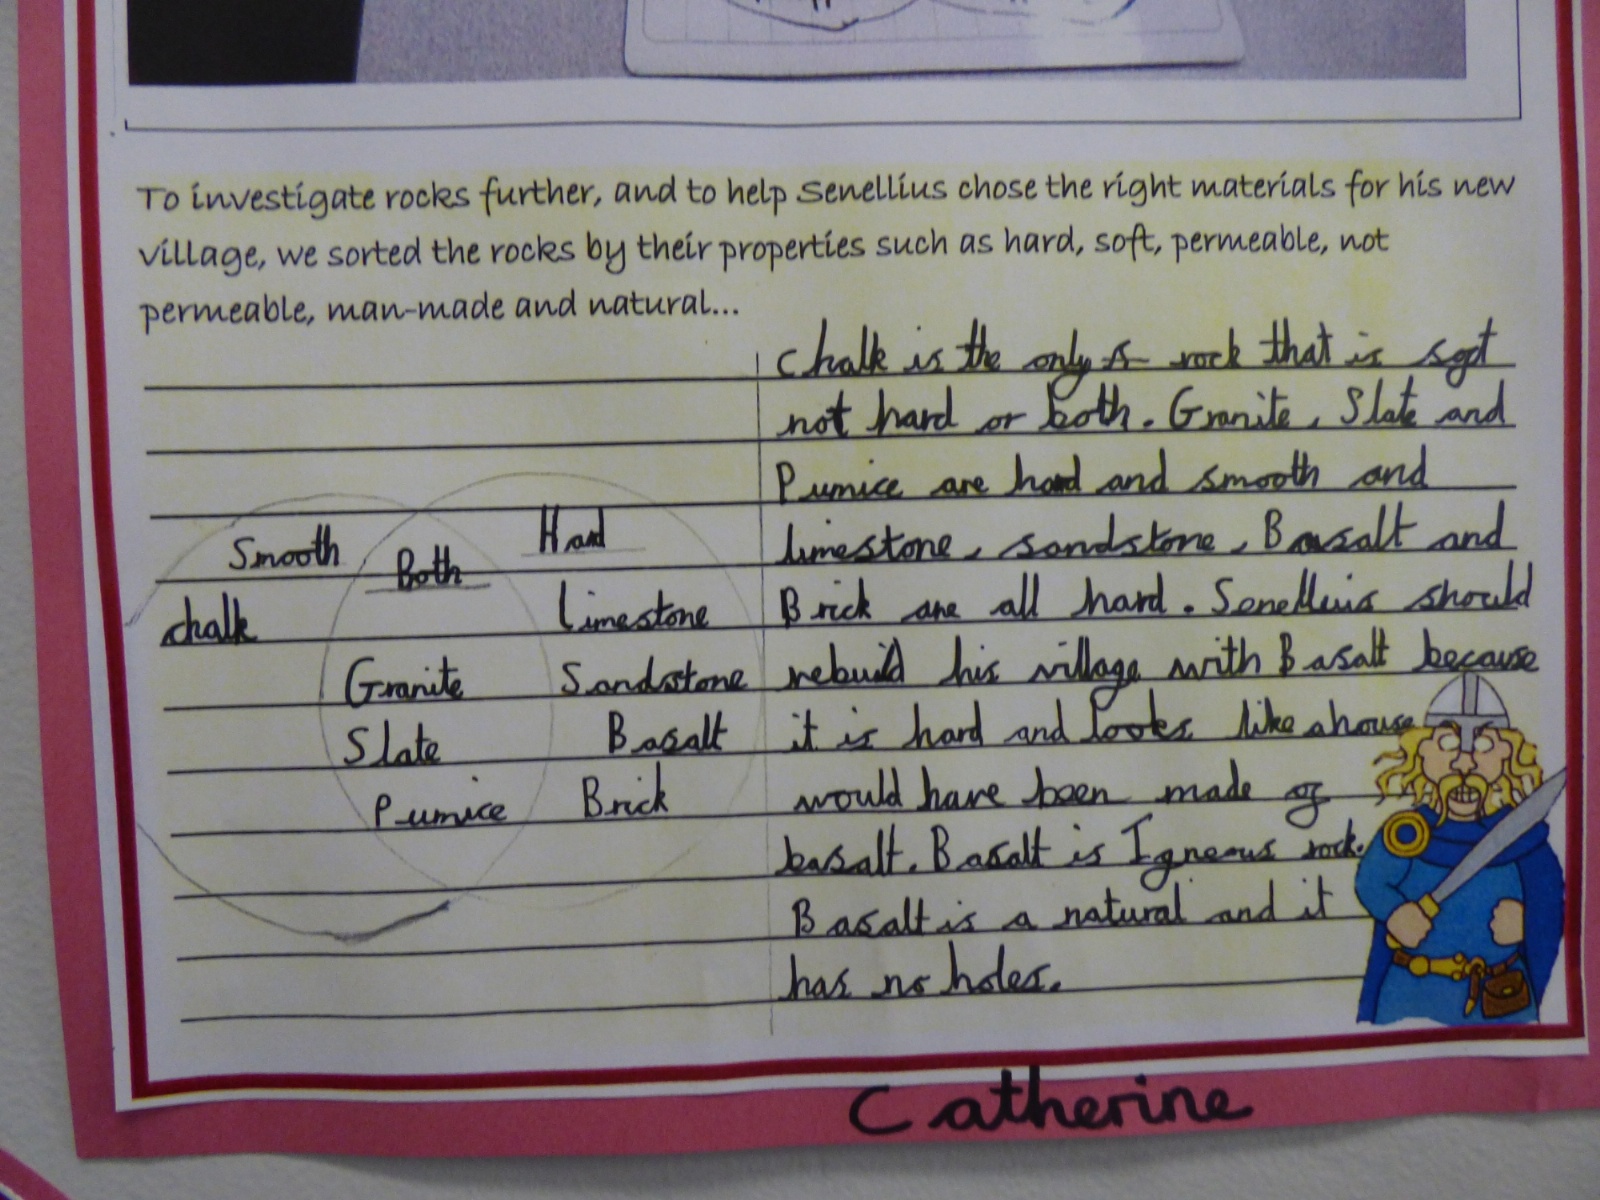 To investigate rocks further, and to help Senellius chose the right materials for his new
village, we sorted the rocks by their properties such as hard, soft, permeable, not
permeable, man-made and natural...
Smooth
Both
Hard
chalk
Limestone
Granite
Sandstone
Slate
Basalt
Pumice
Brick
Chalk is the only rock that is soft
not hard or both. Granite, Slate and
Pumice are hard and smooth and
limestone, sandstone, Basalt and
Brick are all hard. Senellius should
rebuild his village with Basalt because
it is hard and looks like a house
would have been made of
basalt. Basalt is Igneous rock.
Basalt is a natural and it
has no holes.
Catherine